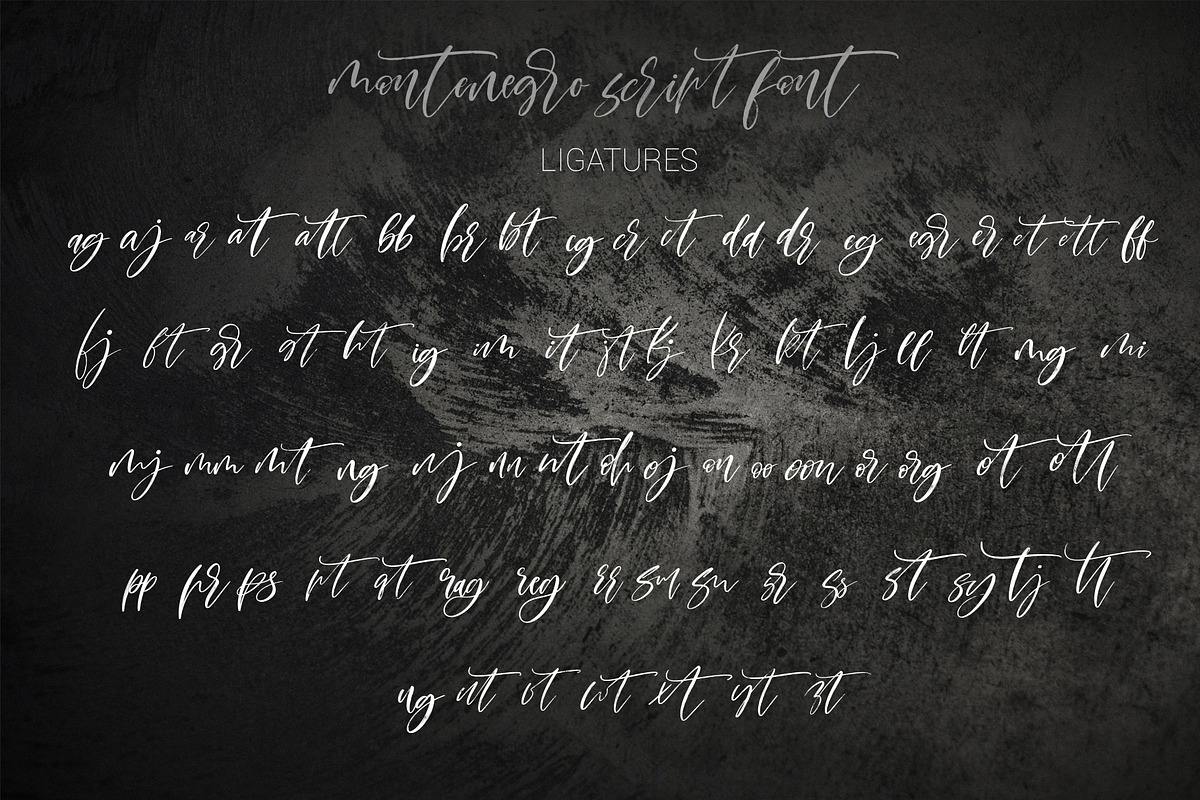 montenegro script font
LIGATURES
ag aj ar at att bb br bt cg cr ct dd dr eg egr er et ett ff
fj ft gr gt ht ig im it jt kj kr kt lj ll lt mg mi
mj mm mt ng nj nn nt oh oj on oo oon or org ot ott
pp pr ps pt qt rag reg rr sm sn sr ss st sy tj tt
ug ut vt wt xt yt zt